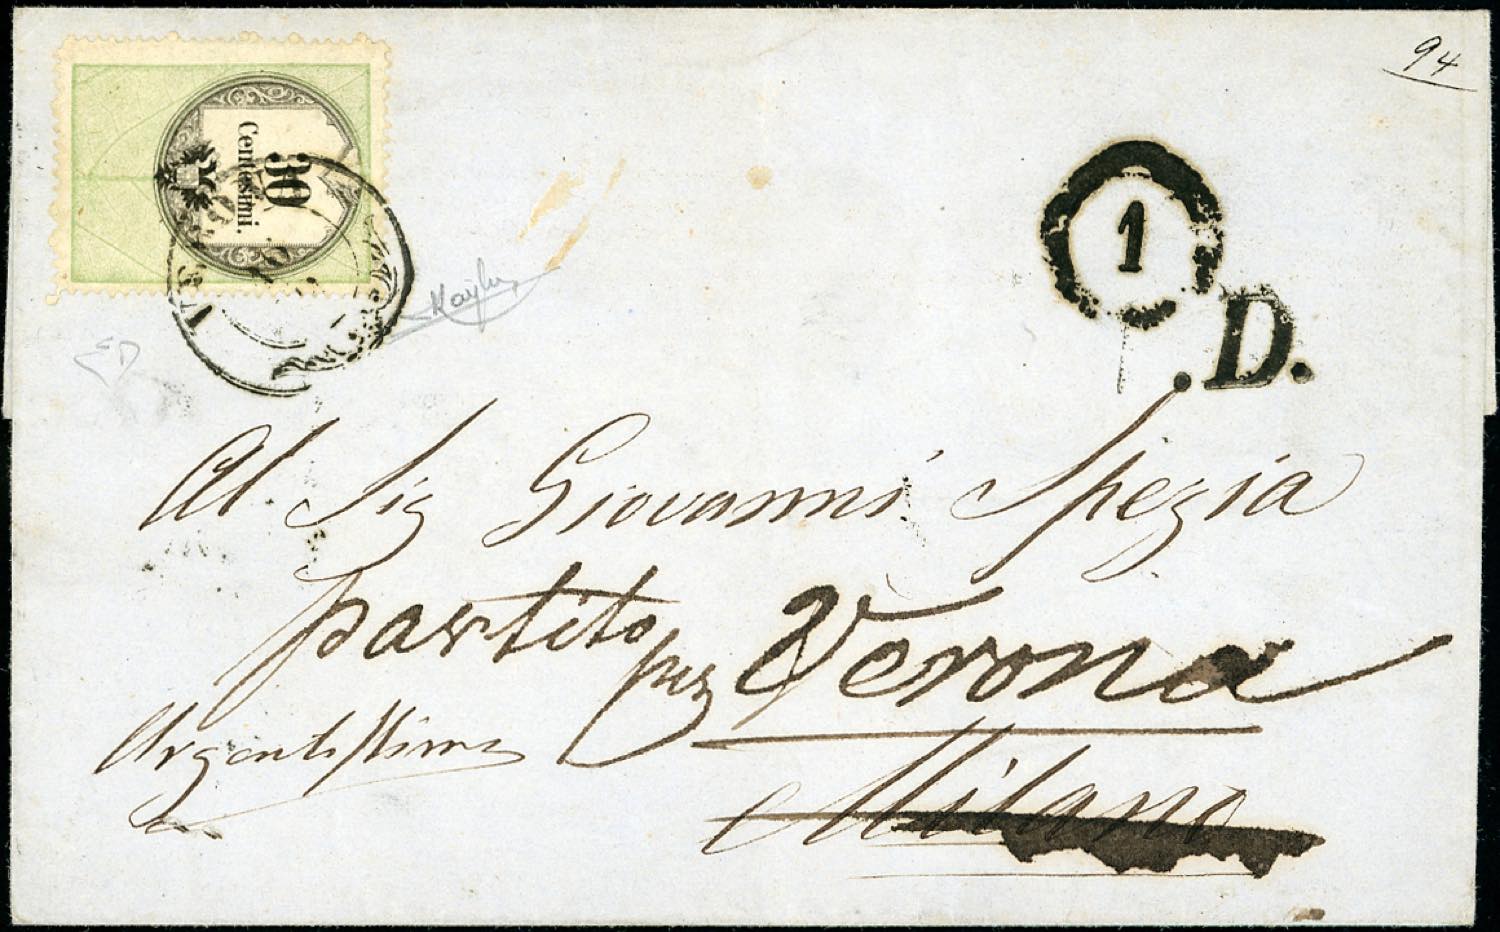 94
30
Centesimi.
1
.D.
Al Sig Giovanni Spezia
partito per Verona
Urgentissima
Milano